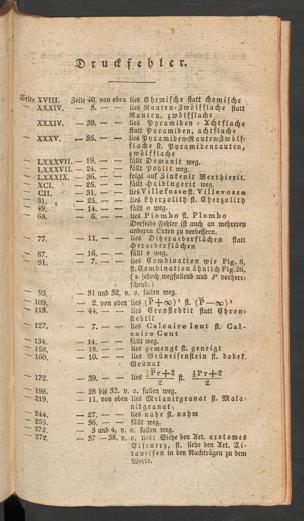 Druckfehler.
Seite XVIII. Zeile 40. von oben lies Chemische statt chemische
— XXXIV. — 3. — — lies Rauten-Zwölfflache statt
Rauten, zwölfflache
— XXXIV. — 39. — — lies Pyramiden-Achtflache
statt Pyramiden, achtflache
— XXXV. — 35. — — lies Pyramiden-Rauten-Zwölf-
flache st. Pyramidenrauten,
zwölfflache
— LXXXVII. — 19. — — fällt Domanit weg.
— LXXXVII. — 24. — — fällt Pohlit weg.
— LXXXIX. — 36. — — folgt auf Zinkenit Berthierit.
— XCI. — 25. — — fällt Haidingerit weg.
— CII. — 31. — — lies Villefosse st. Villevosse
— 31. — 25. — — lies Lherzolith st. Cherzolith
— 49. — 14. — — fällt o weg.
— 68. — 6. — — lies Piombo st. Plombo
Derselbe Fehler ist auch an mehreren
anderen Orten zu verbessern.
— 77. — 11. — — lies Diheraederflächen statt
Heraederflächen
— 87. — 16. — — fällt x weg.
— 91. — 7. — — lies Combination wie Fig. 8,
st. Combination ähnlich Fig. 26,
(x jedoch wegfallend und P vorherr-
schend.)
— 93. — 31 und 32. v. o. fallen weg.
— 109. — 2. von oben lies (P̆+∞)² st. (P̆—∞)²
— 118. — 44. — — lies Cronstedtit statt Chron-
stedtit
— 127. — 7. — — lies Calcaire lent st. Cal-
caire Cent
— 134. — 14. — — fällt weg.
— 158. — 18. — — lies gemengt st. geneigt
— 160. — 10. — — lies Grüneisenstein st. dodek.
Granat
— 172. — 39. — — lies
— 198. — 28 bis 32. v. o. fallen weg.
— 219. — 11. von oben lies Melanitgranat st. Mala-
nitgranat
— 244. — 27. — — lies nahe st. nahm
— 255. — 36. — — fällt weg.
— 272. — 3 und 4. v. o. fallen weg.
— 272. — 37 —38. v. o. lies: Siehe den Art. axotomes
Eisenerz, st. siehe den Art. Ti-
taneisen in den Nachträgen zu dem
Werke.